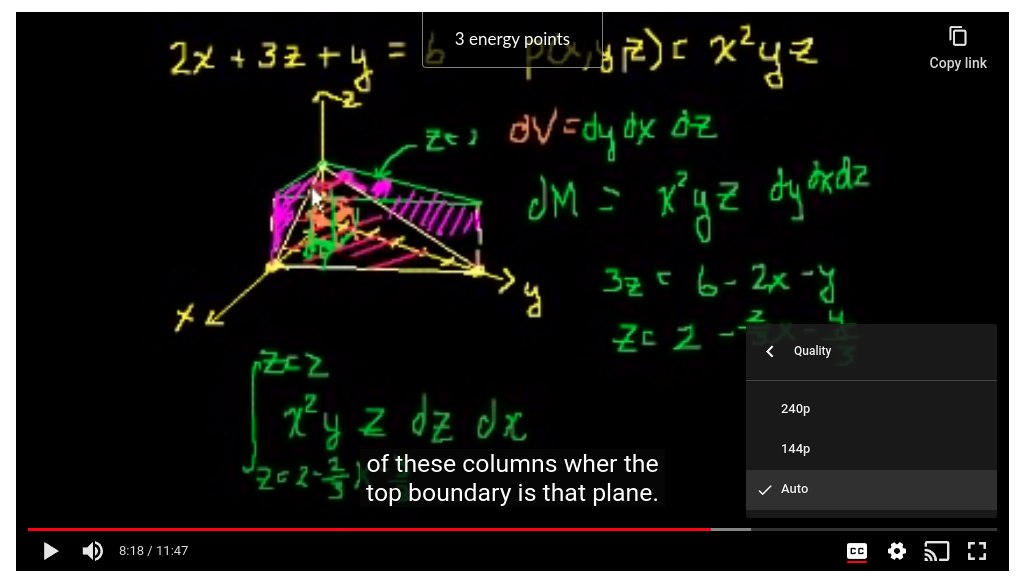 2x + 3z + y = 6
3 energy points
x²yz
Copy link
z
z=2
dV = dy dx dz
dM = x²yz dy dx dz
3z = 6 - 2x - y
z = 2 -
x
y
z=2
x² y z dz dx
z = 2 - 2/3 x
of these columns wher the
top boundary is that plane.
Quality
240p
144p
Auto
8:18 / 11:47
CC